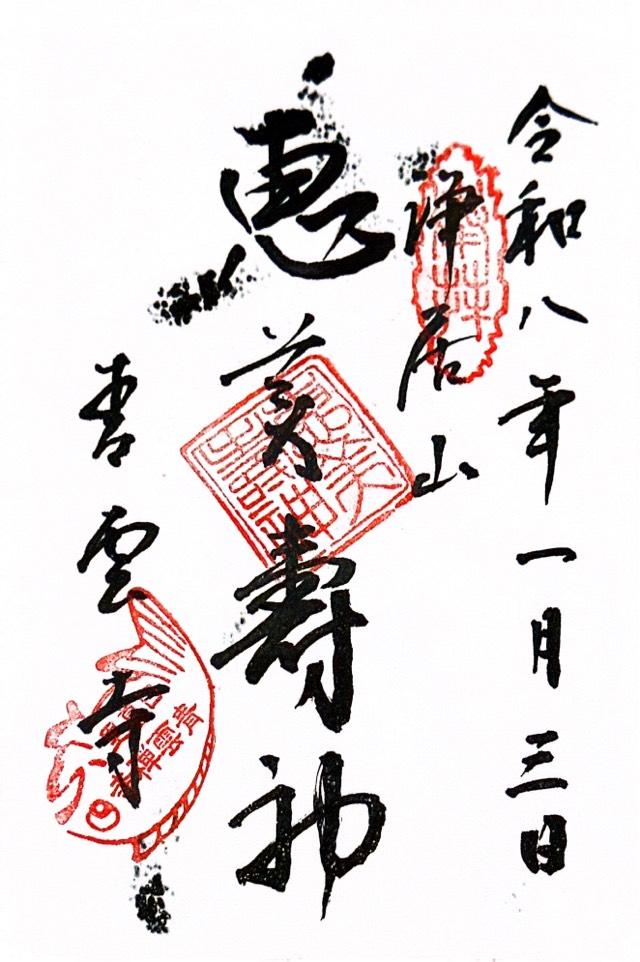 令和八年一月三日
浄居山
恵美壽神
青雲寺